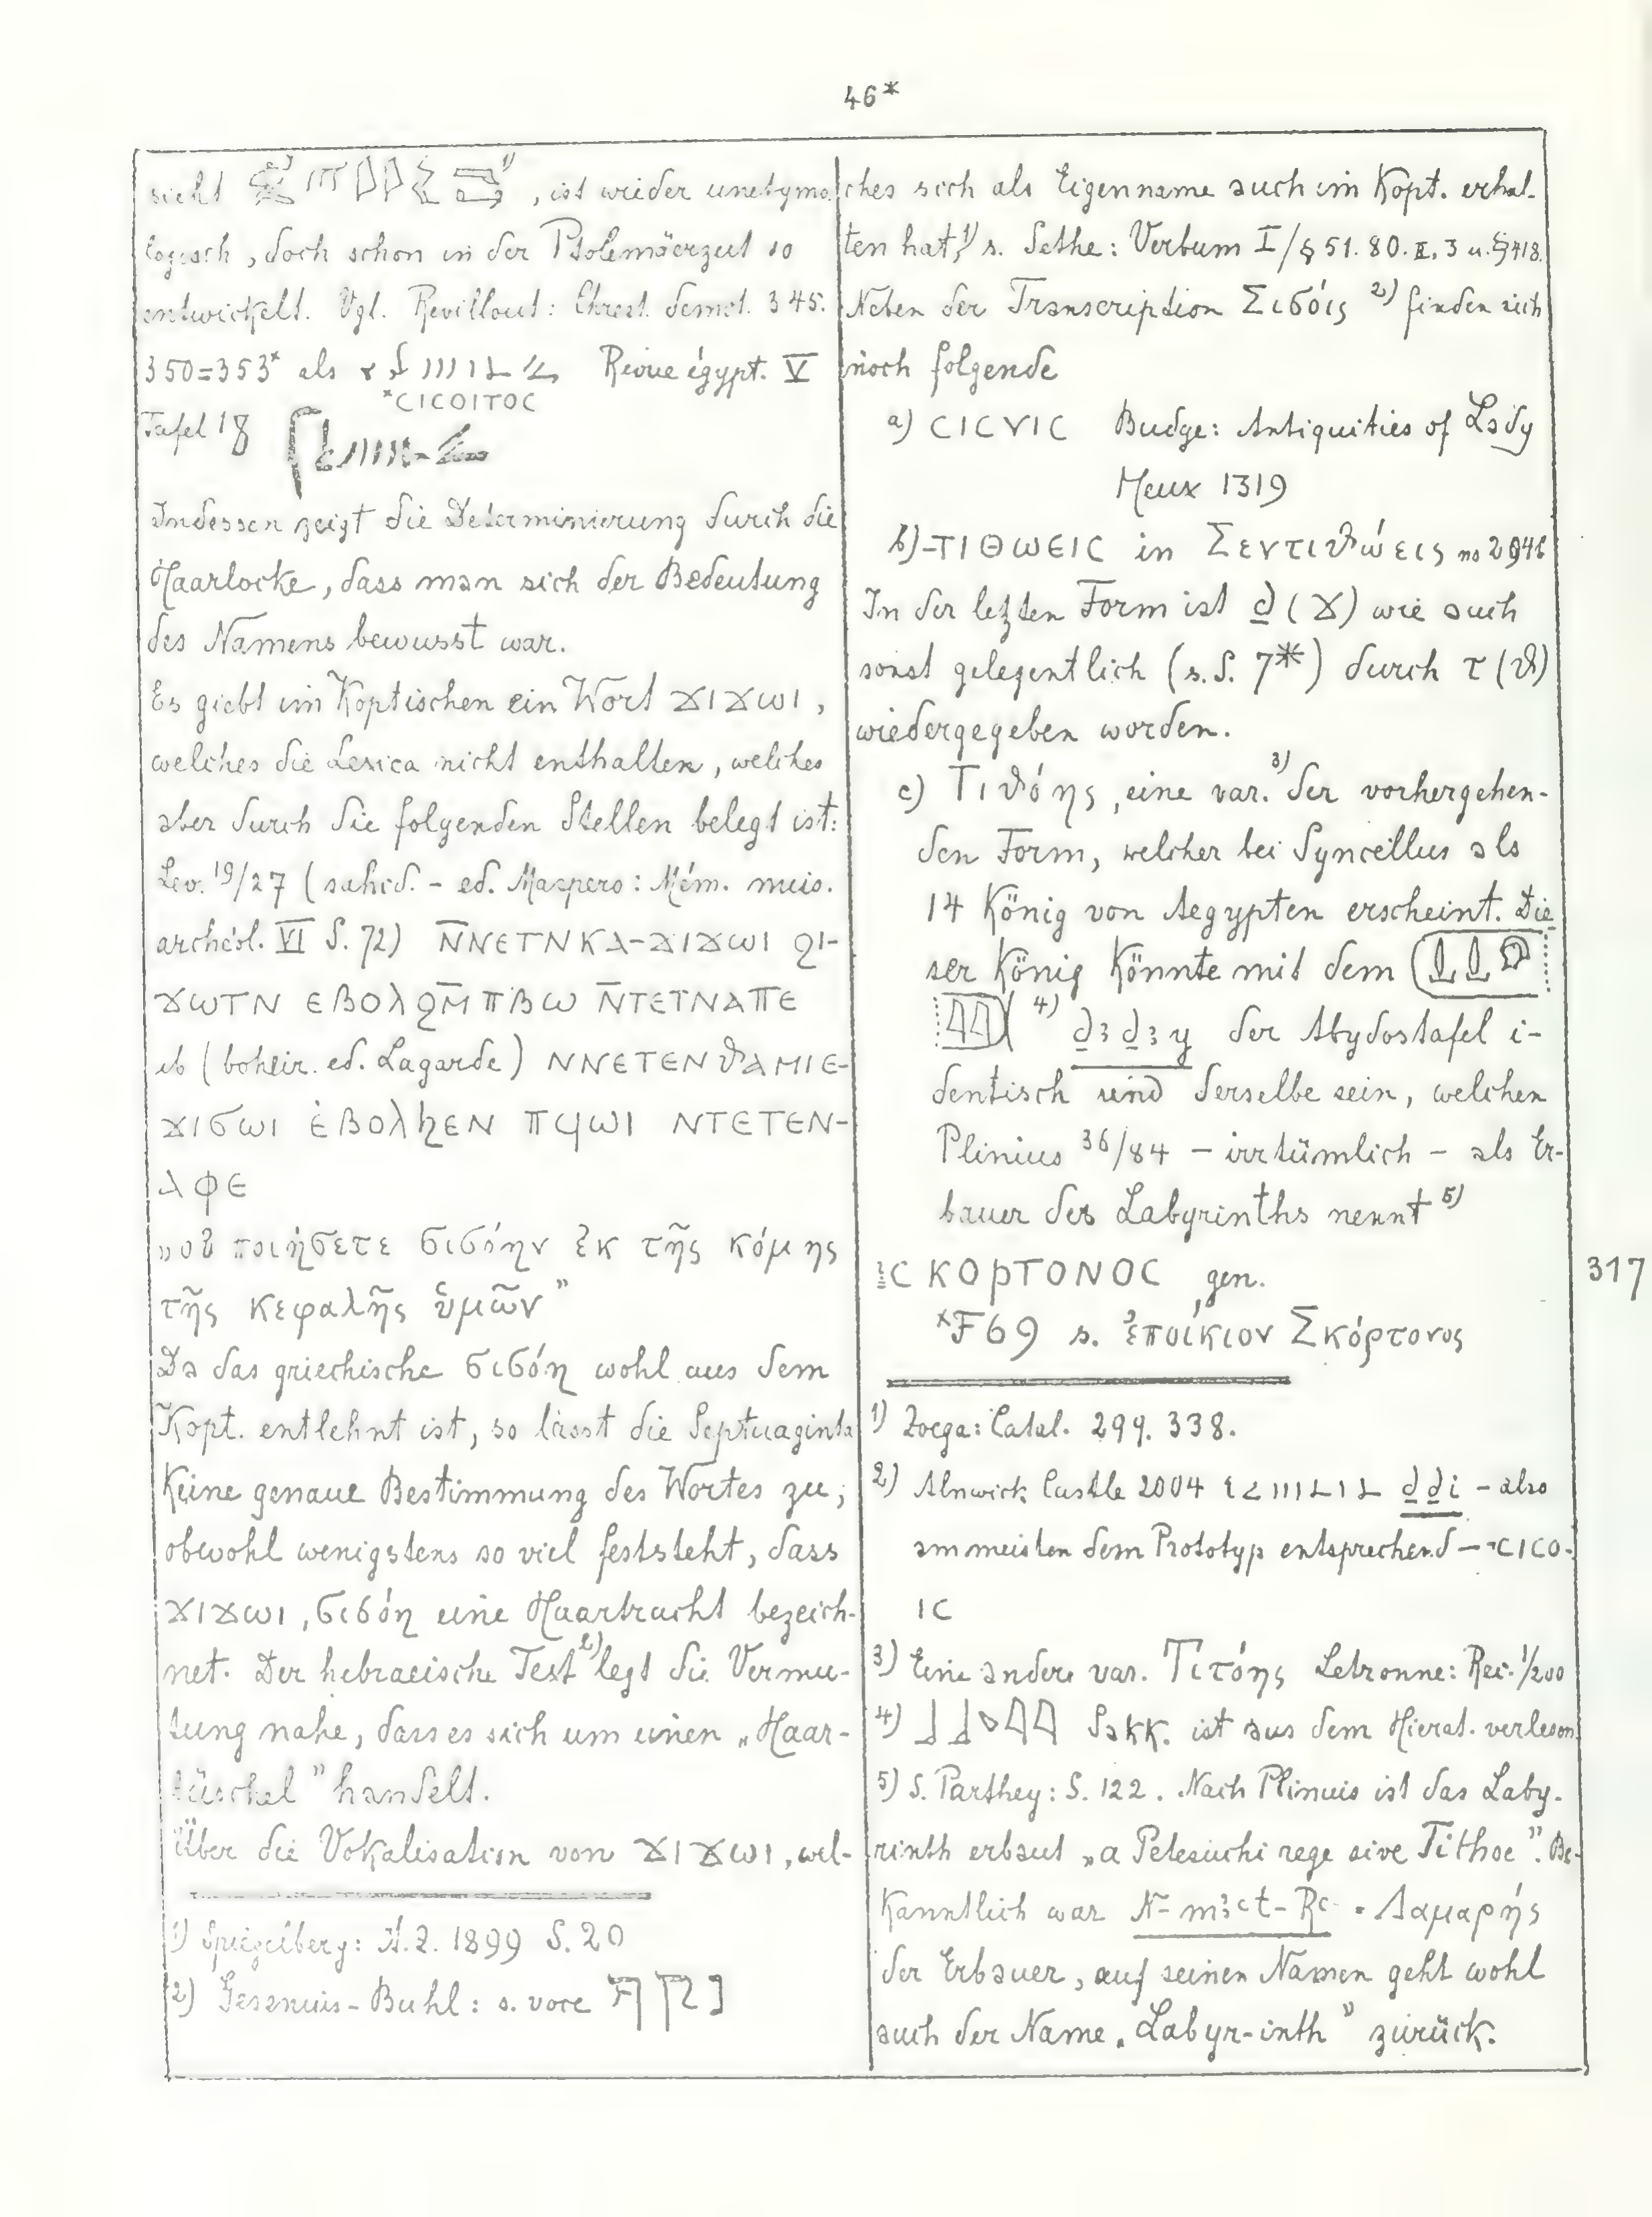 46*
sieht , ist wieder unetymo-
logisch, doch schon in der Ptolemäerzeit so
entwickelt. Vgl. Revillout: Chrest. demot. 345.
350=353* als Revue égypt. V
*CICOITOC
Tafel 18
Indessen zeigt die Determinierung durch die
Haarlocke, dass man sich der Bedeutung
des Namens bewusst war.
Es giebt im Koptischen ein Wort ϫⲓϫⲱⲓ,
welches die Lexica nicht enthalten, welches
aber durch die folgenden Stellen belegt ist:
Lev. 19/27 (sahid. - ed. Maspero: Mém. miss.
archéol. VI S. 72) ⲛ̄ⲛⲉⲧⲛⲕⲁ-ϫⲓϫⲱⲓ ϩⲓ-
ϫⲱⲧⲛ ⲉⲃⲟⲗϩⲙ̄ ⲡⲃⲱ ⲛ̄ⲧⲉⲧⲛⲁⲡⲉ
ib (boheir. ed. Lagarde) ⲛⲛⲉⲧⲉⲛⲑⲁⲙⲓⲉ-
ϫⲓϭⲱⲓ ⲉ̇ⲃⲟⲗϧⲉⲛ ⲡϥⲱⲓ ⲛⲧⲉⲧⲉⲛ-
ⲁⲫⲉ
„οὐ ποιήσετε σισόην ἐκ τῆς κόμης
τῆς κεφαλῆς ὑμῶν”
Da das griechische σισόη wohl aus dem
Kopt. entlehnt ist, so lässt die Septuaginta
Keine genaue Bestimmung des Wortes zu,
obwohl wenigstens so viel feststeht, dass
ϫⲓϫⲱⲓ, σισόη eine Haartracht bezeich-
net. Der hebraeische Text 2) legt die Vermu-
tung nahe, dass es sich um einen „Haar-
büschel” handelt.
Über die Vokalisation von ϫⲓϫⲱⲓ, wel-
1) Spiegelberg: A.Z. 1899 S. 20
2) Gesenius-Buhl: s. voce פאה
ches sich als Eigenname auch im Kopt. erhal-
ten hat,1) s. Sethe: Verbum I/§ 51. 80. II, 3 u. § 418.
Neben der Transcription Σισόις 2) finden sich
noch folgende
a) CICVIC Budge: Antiquities of Lady
Meux 1319
b) -ΤΙΘωΕΙC in Σεντιθώεις no 294b
In der letzten Form ist ḏ (ϫ) wie auch
sonst gelegentlich (s. S. 7*) durch τ (ϑ)
wiedergegeben worden.
c) Τιθόης, eine var.3) der vorhergehen-
den Form, welcher bei Syncellus als
14 König von Aegypten erscheint. Die-
ser König Könnte mit dem
4) ḏꜣḏꜣy der Abydostafel i-
dentisch und derselbe sein, welchen
Plinius 36/84 - irrtümlich - als Er-
bauer des Labyrinths nennt 5)
CΚΟΡΤΟΝΟC, gen. 317
*F69 s. ἐποίκιον Σκόρτονος
1) Zoega: Catal. 299. 338.
2) Alnwick Castle 2004 ḏḏi - also
am meisten dem Prototyp entsprechend - *CICO-
IC
3) Eine andere var. Τιτόης Letronne: Rec. 1/200
4) Sakk. ist aus dem Hierat. verlesen
5) S. Parthey: S. 122. Nach Plinius ist das Laby-
rinth erbaut „a Petesuchi rege sive Tithoe”. Be-
Kanntlich war N-mꜣꜥt-Rꜥ - Λαμαρής
der Erbauer, auf seinen Namen geht wohl
auch der Name „Labyr-inth” zurück.